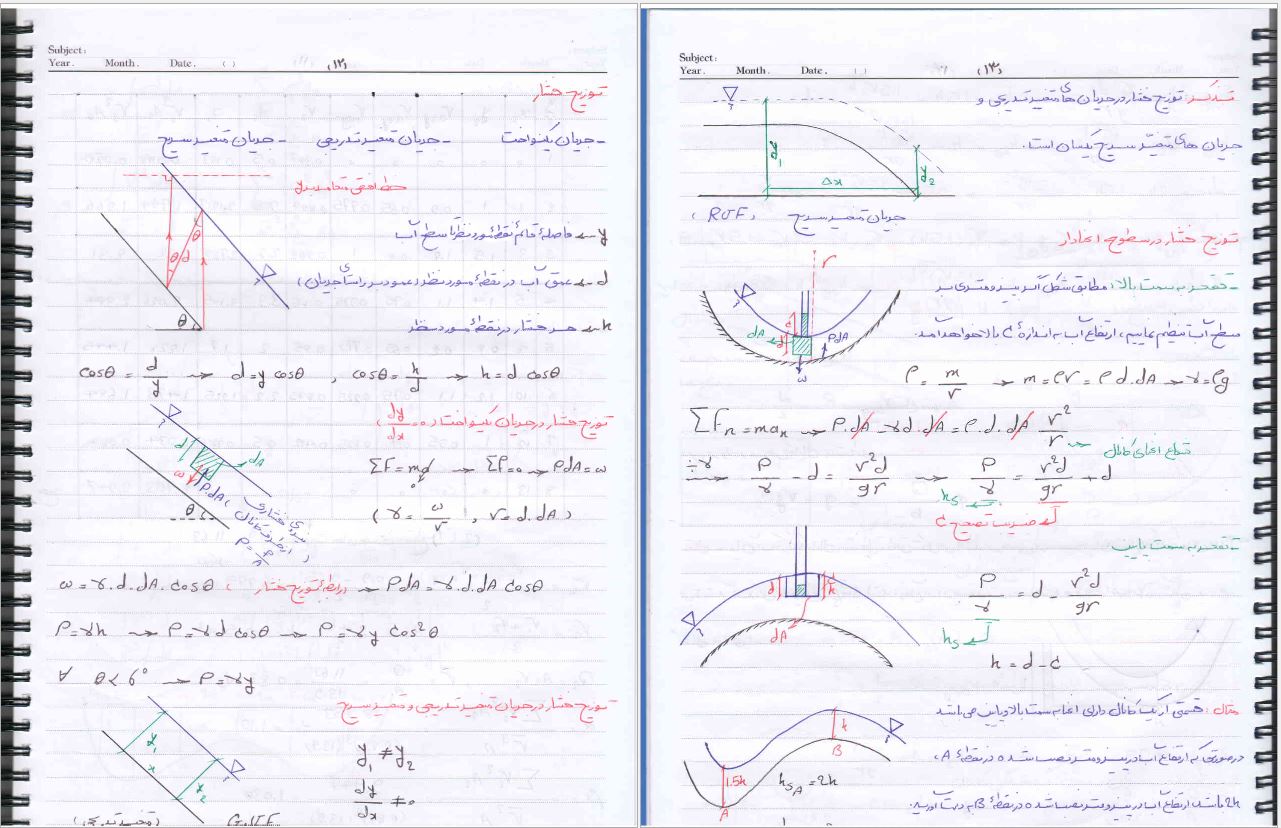 Subject:
Year. Month. Date. ( ) (۱۲)
توزیع فشار
- جریان یکنواخت - جریان متغیر تدریجی - جریان متغیر سریع
خط افقی متعامد بر y
y → فاصله قائم نقطه مورد نظر تا سطح آب
d → عمق آب در نقطه مورد نظر (عمود بر راستای جریان)
h → هد فشار در نقطه مورد نظر
θ
d
θ
θ
cosθ = d/y → d = y cosθ , cosθ = h/d → h = d cosθ
توزیع فشار در جریان یکنواخت (dy/dx = 0)
d
dA
ω
P.dA
θ
P = F/A
ΣF = ma → ΣF = 0 → PdA = ω
(γ = ω/V , V = d.dA)
ω = γ.d.dA.cosθ (رابطه توزیع فشار) → PdA = γ.d.dA cosθ
P = γh → P = γ d cosθ → P = γ y cos²θ
∀ θ < 6° → P = γy
توزیع فشار در جریان متغیر تدریجی و متغیر سریع
y₁
x
y₂
y₁ ≠ y₂
dy/dx ≠ 0
G.V.F
Subject:
Year. Month. Date. ( ) (۱۳)
تذکر: توزیع فشار در جریان های متغیر تدریجی و
جریان های متغیر سریع یکسان است.
Δx
جریان متغیر سریع (RVF)
توزیع فشار در سطوح انحنادار
- تقعر به سمت بالا: مطابق شکل اگر پیزومتری در
سطح آب تنظیم نماییم، ارتفاع آب به اندازه C بالا خواهد آمد.
r
c
d
dA
PdA
ω
ρ = m/V → m = ρV = ρ d.dA → γ = ρg
ΣFn = man → P.dA - γ d.dA = ρ.d.dA v²/r
شعاع انحنای کانال
÷γ → P/γ - d = v²d/gr → P/γ = v²d/gr + d
hs
ضریب تصحیح C
- تقعر به سمت پایین
d
h
dA
P/γ = d - v²d/gr
hs
h = d - c
مثال: قسمتی از یک کانال دارای انحنا به سمت بالا و پایین می باشد
در صورتی که ارتفاع آب در پیزومتر نصب شده در نقطه A،
2h باشد، ارتفاع آب در پیزومتر نصب شده در نقطه B به دست آورید.
1.5h
A
h
B
hsA = 2h